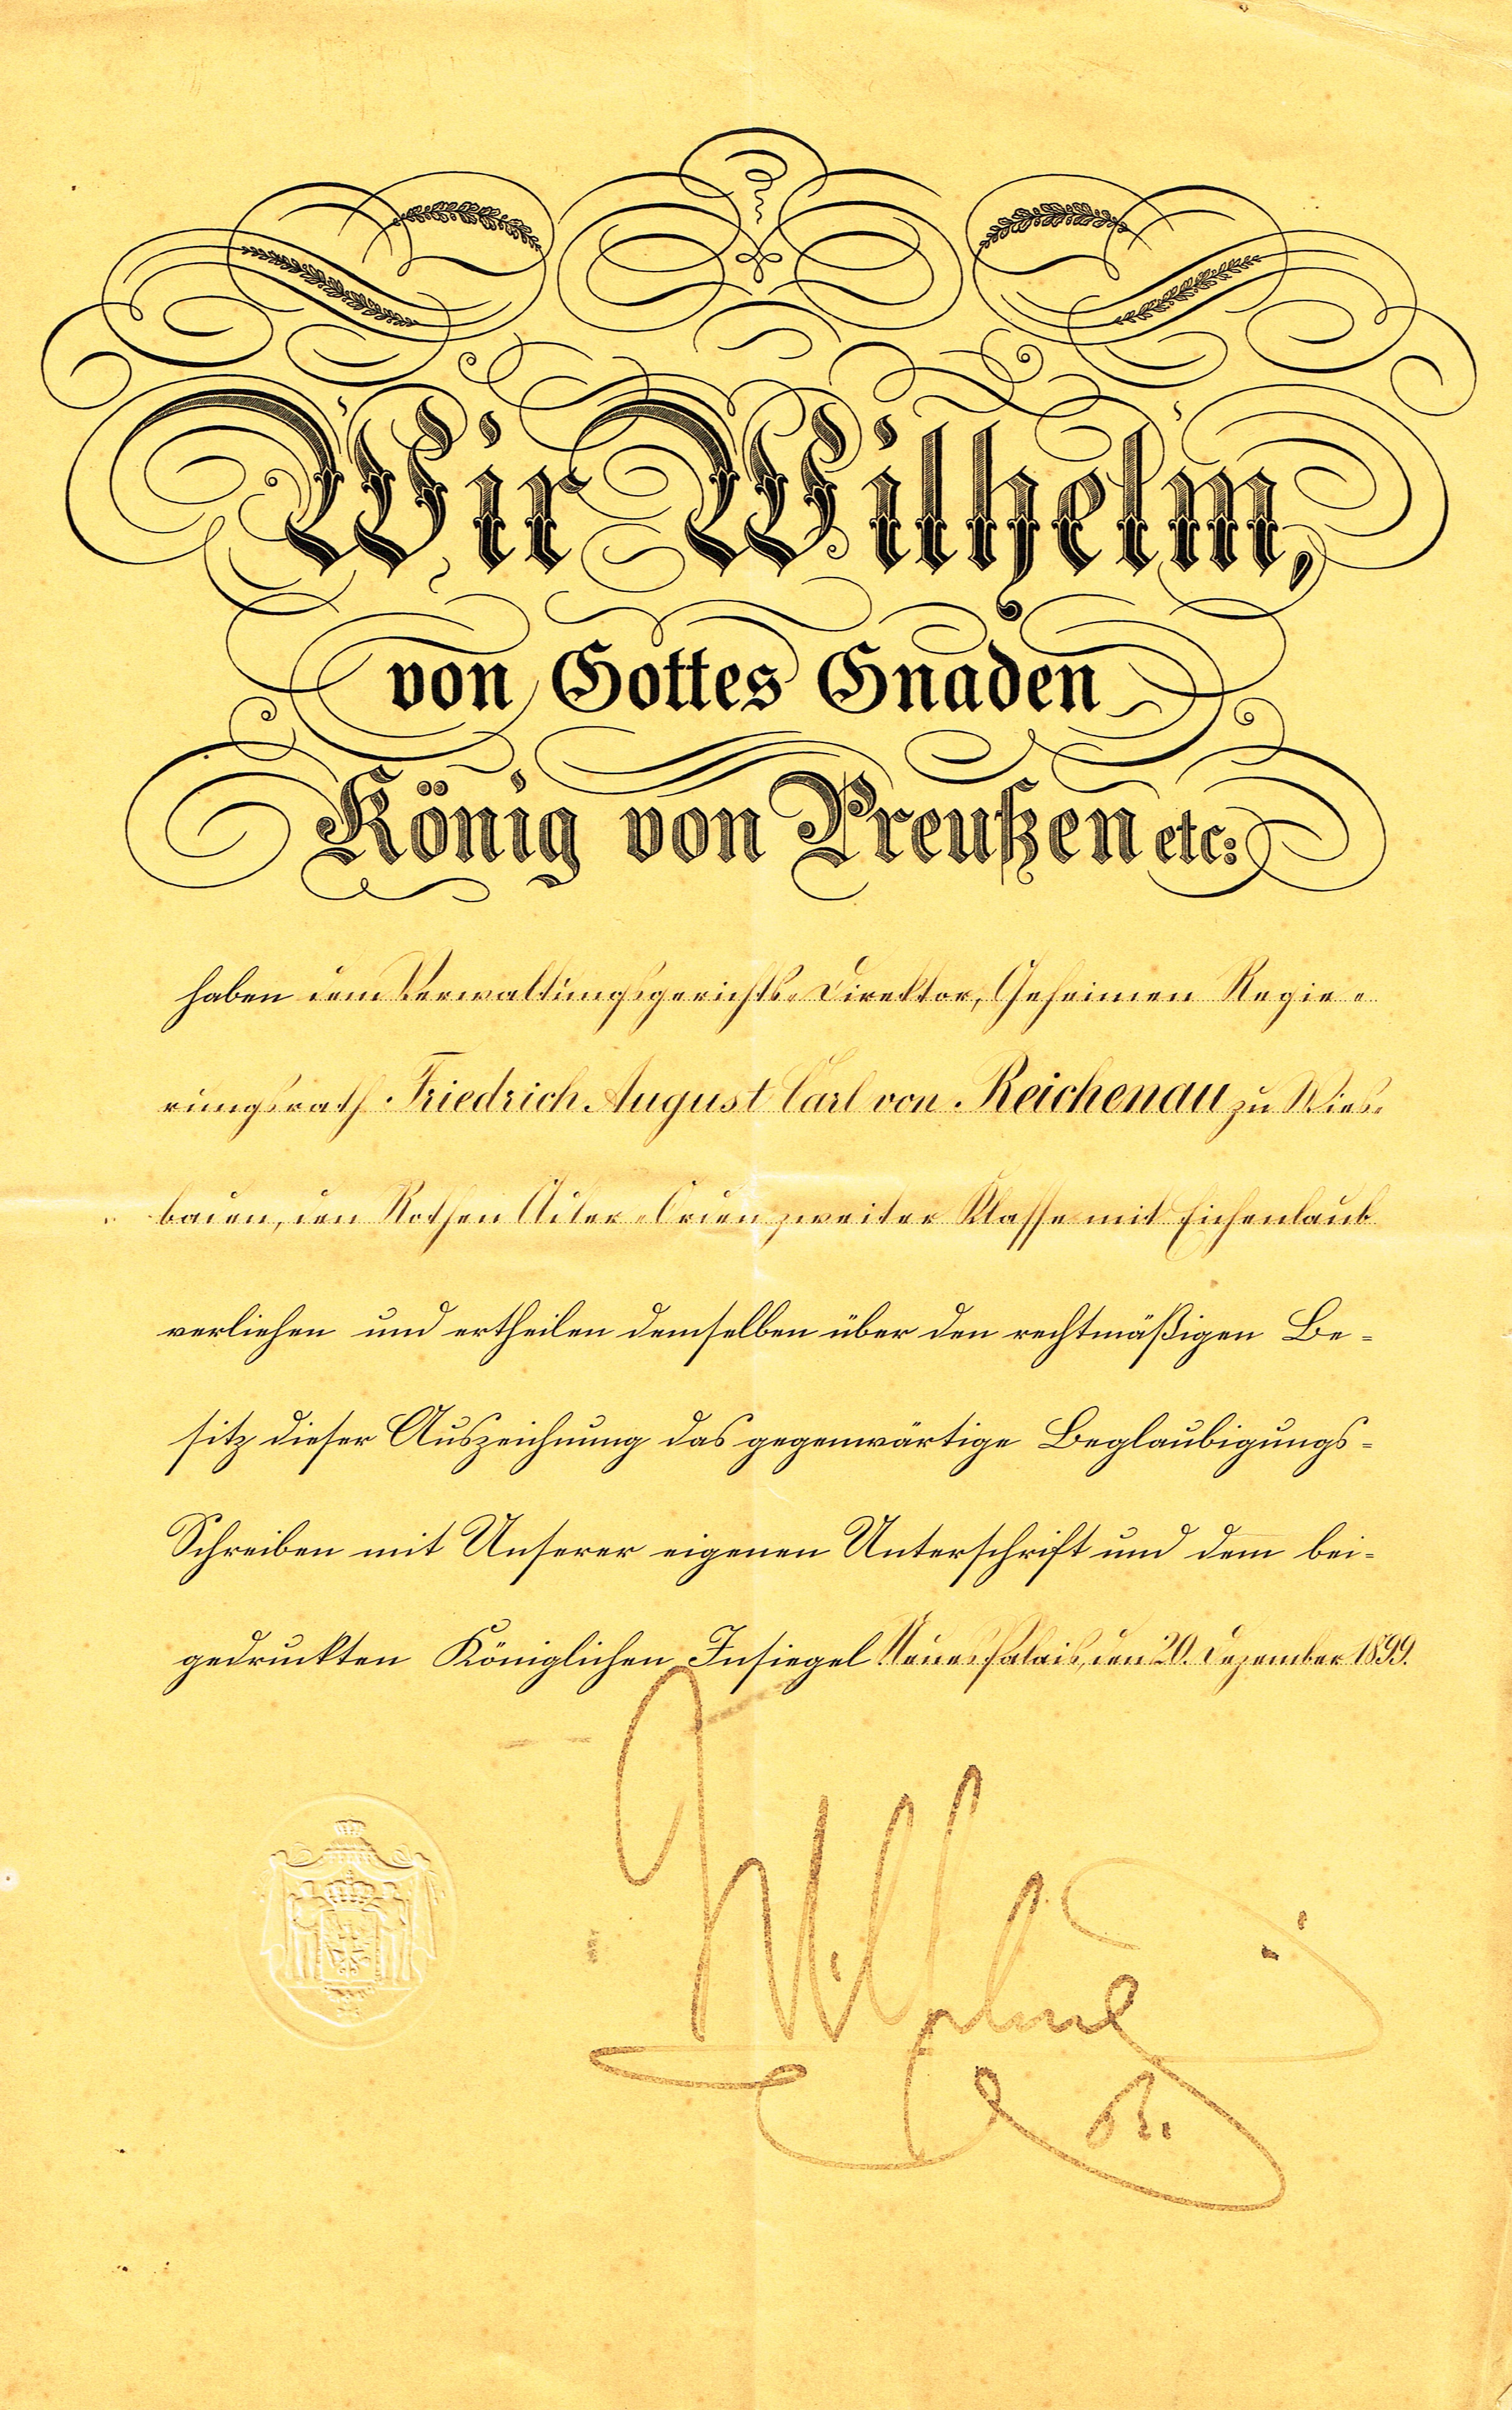 Wir Wilhelm,
von Gottes Gnaden
König von Preußen etc:
haben dem Verwaltungsgerichts-Direktor, Geheimen Regie-
rungsrath Friedrich August Carl von Reichenau zu Wies-
baden, den Rothen Adler-Orden zweiter Klasse mit Eichenlaub
verliehen und ertheilen demselben über den rechtmäßigen Be-
sitz dieser Auszeichnung das gegenwärtige Beglaubigungs-
Schreiben mit Unserer eigenen Unterschrift und dem bei-
gedruckten Königlichen Insiegel Neues Palais, den 20. Dezember 1899.
Wilhelm
R.